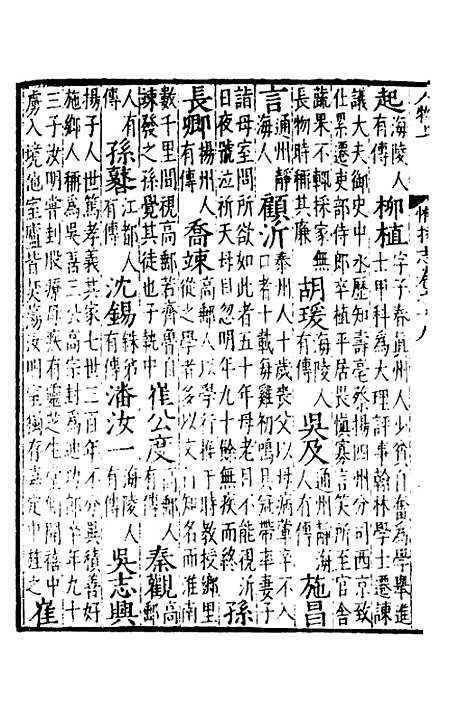 起 海陵人
有傳
柳植 字子春真州人少貧自奮為學舉進
士甲科為大理評事翰林學士遷諫
議大夫御史中丞歷知壽亳蔡揚四州分司西京致
仕累遷吏部侍郎卒植平居畏慎寡言笑所至官舍
蔬果不輒採家無
長物時稱其廉
胡瑗 海陵人
有傳
吳及 通州靜海
人有傳
施昌
言 通州靜
海人
顧沂 泰州人十歲喪父以母病葷辛不入
口者十載每雞初鳴具冠帶率妻子
詣母室問所欲如此者五十年母老目不能視沂
日夜號泣祈天母目明年九十餘無疾而終
孫
長卿 揚州人
有傳
喬竦 高郵人以學行推于時教授鄉里
從之學者多以文有名而淮南
數千里間視高郵若齊魯自
竦發之孫覺其徒也子執中
有傳
崔公度 高郵人
有傳
秦觀 高郵
人有傳
孫 江都人
有傳
沈錫 銖弟有
傳
潘汝一 海陵人
有傳
吳志興
揚子人世篤孝義其家七世三百年不異積善好
施鄉人稱為吳年九十
三子汝明嘗刲股療母疾有靈芝生開禧中
虜入境他室廬皆焚蕩汝明室獨存嘉定中旌之
崔